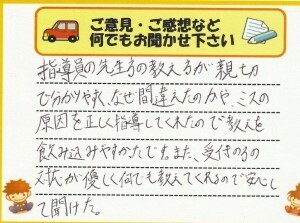 ご意見・ご感想など
何でもお聞かせ下さい
指導員の先生方の教え方が親切
で分かりやすく、なぜ間違えたのかや、ミスの
原因を正しく指導してくれたので教えを
飲み込みやすかったです。また、受付の方の
対応が優しく何でも教えてくれるので安心し
て聞けた。